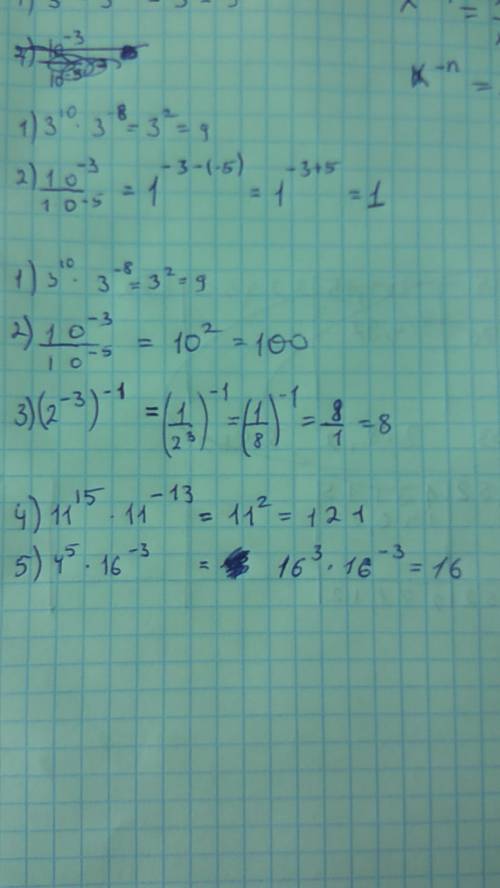 x =
7) 10⁻³
x⁻ⁿ =
1) 3¹⁰ · 3⁻⁸ = 3² = 9
2) 10⁻³/10⁻⁵ = 1⁻³⁻⁽⁻⁵⁾ = 1⁻³⁺⁵ = 1
1) 3¹⁰ · 3⁻⁸ = 3² = 9
2) 10⁻³/10⁻⁵ = 10² = 100
3) (2⁻³)⁻¹ = (1/2³)⁻¹ = (1/8)⁻¹ = 8/1 = 8
4) 11¹⁵ · 11⁻¹³ = 11² = 121
5) 4⁵ · 16⁻³ = 16³ · 16⁻³ = 16